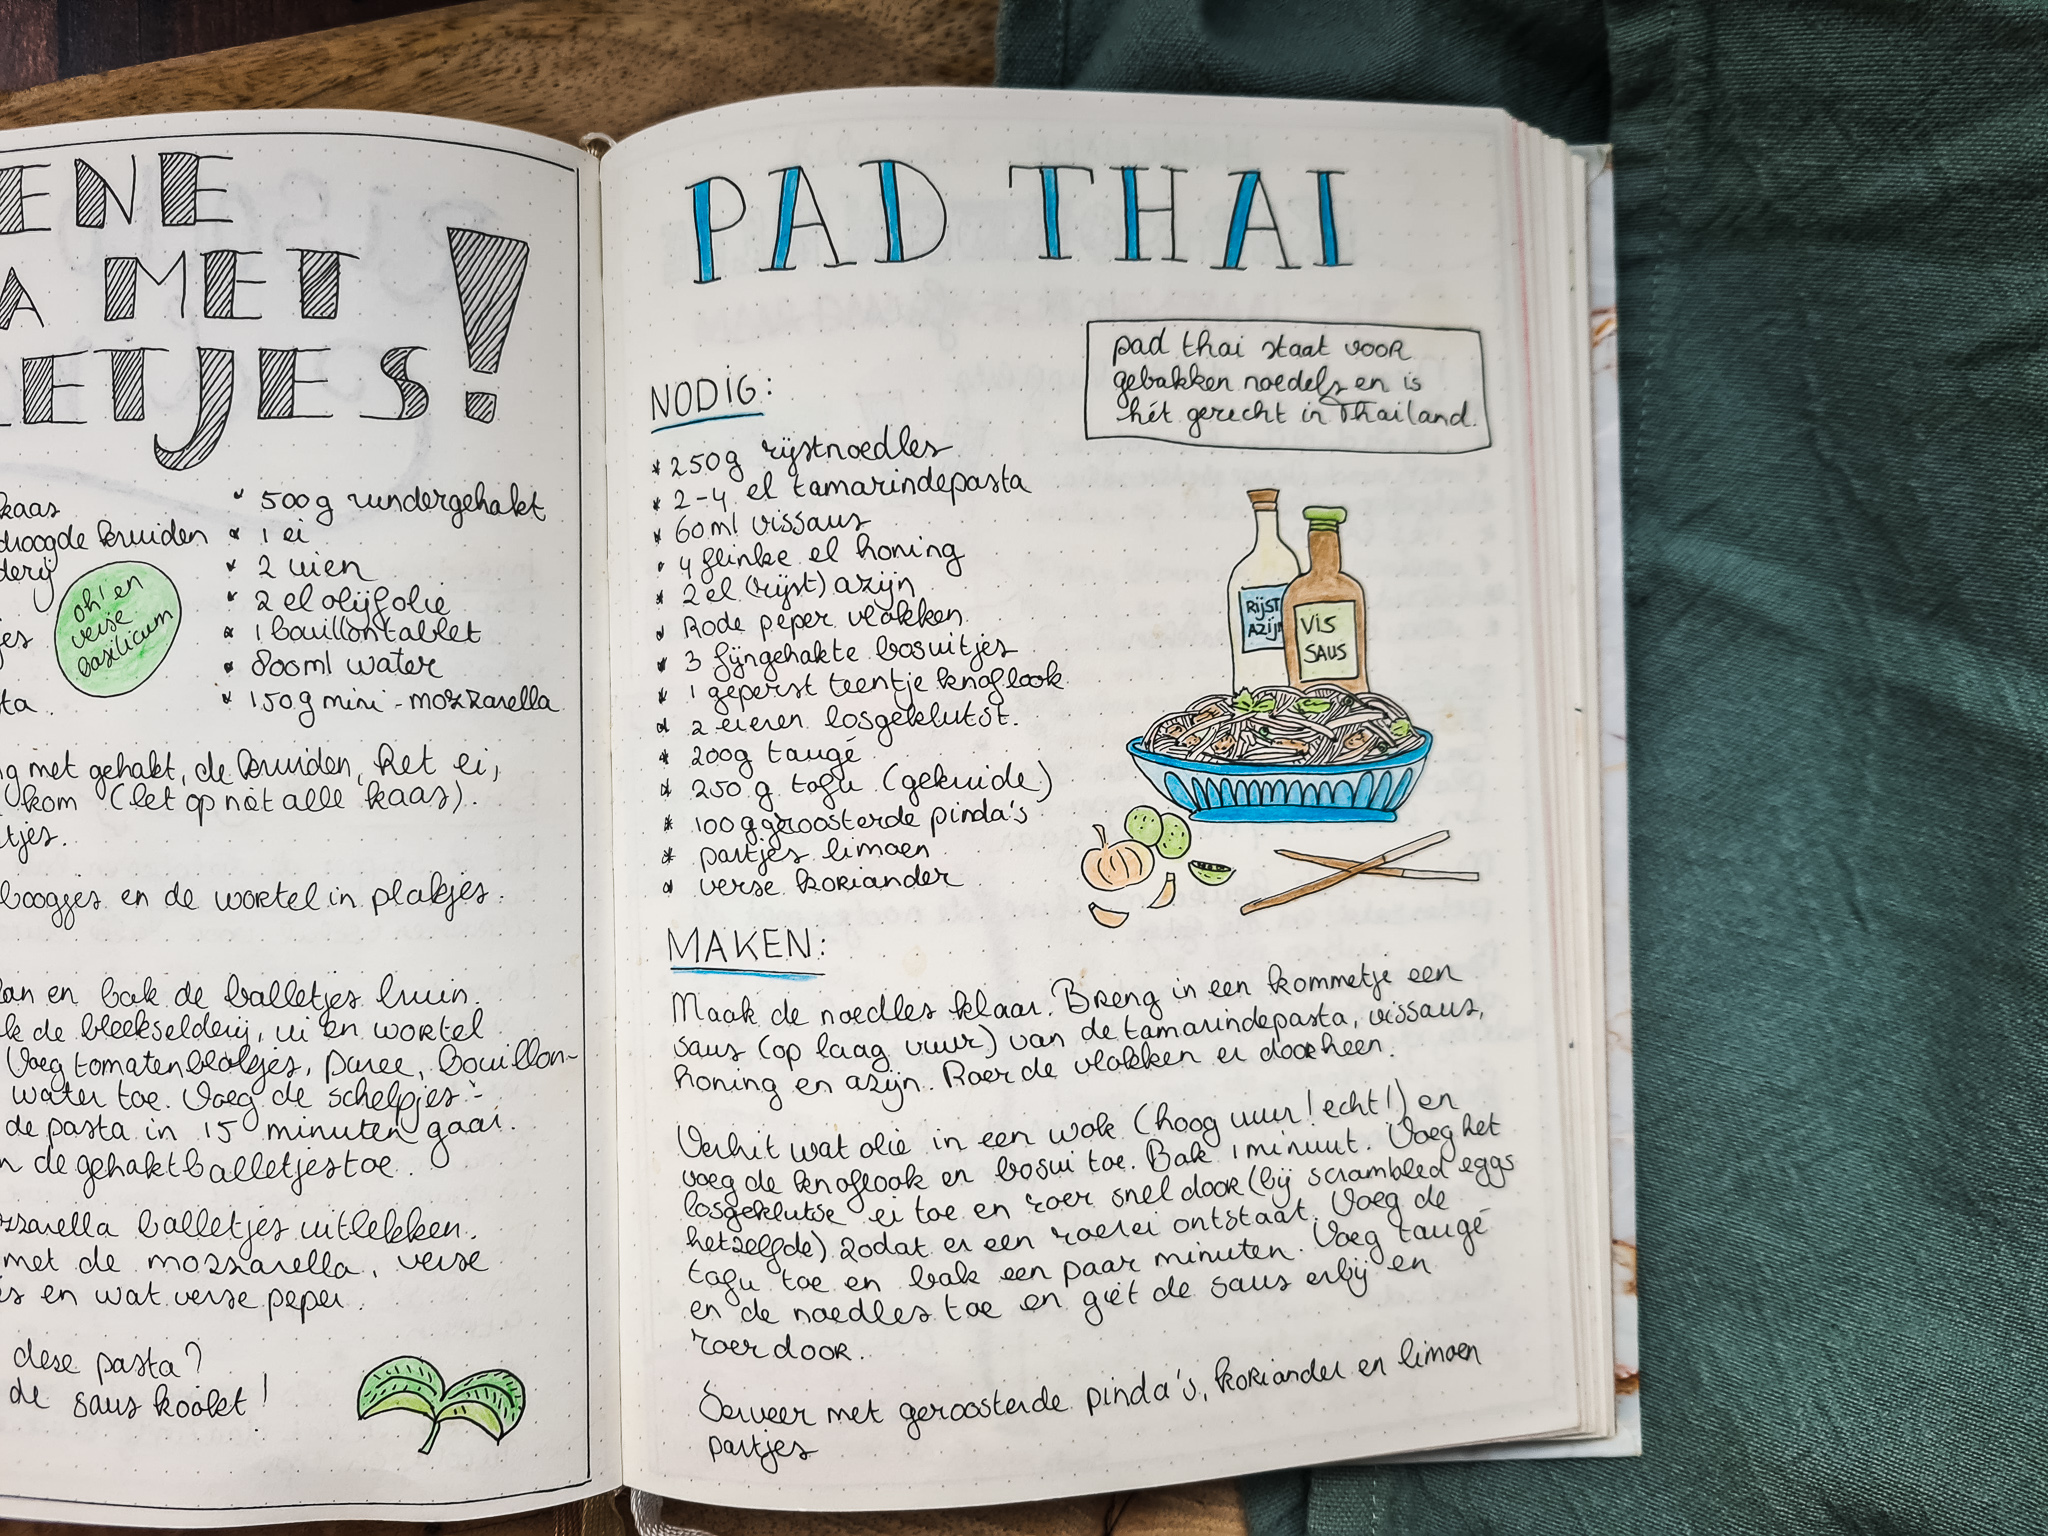 ENE
A MET
ETJES!
kaas
droogde kruiden
derij
jes
sta.
oh! en
verse
basilicum
500g rundergehakt
1 ei
2 uien
2 el olijfolie
1 bouillontablet
800ml water
150g mini-mozzarella
ng met gehakt, de kruiden, het ei,
kom (let op niet alle kaas).
tjes.
boogjes en de wortel in plakjes.
an en bak de balletjes bruin.
k de bleekselderij, ui en wortel
Voeg tomatenblokjes, puree, bouillon-
water toe. Voeg de schelpjes-
de pasta in 15 minuten gaar.
n de gehaktballetjes toe.
ozzarella balletjes uitlekken.
met de mozzarella, verse
s en wat verse peper.
deze pasta?
de saus kookt!
PAD THAI
pad thai staat voor
gebakken noedels en is
hét gerecht in Thailand.
NODIG:
* 250g rijstnoedles
* 2-4 el tamarindepasta
* 60ml vissaus
* 4 flinke el honing
* 2 el (rijst)azijn
* Rode peper vlokken
* 3 fijngehakte bosuitjes
* 1 geperst teentje knoflook
* 2 eieren losgeklutst.
* 200g taugé
* 250 g tofu (gekruide)
* 100g geroosterde pinda's
* partjes limoen
* verse koriander
RIJST
AZIJN
VIS
SAUS
MAKEN:
Maak de noedles klaar. Breng in een kommetje een
saus (op laag vuur) van de tamarindepasta, vissaus,
honing en azijn. Roer de vlokken er doorheen.
Verhit wat olie in een wok (hoog vuur! echt!) en
voeg de knoflook en bosui toe. Bak 1 minuut. Voeg het
losgeklutse ei toe en roer snel door (bij scrambled eggs
hetzelfde) zodat er een roerei ontstaat. Voeg de
tofu toe en bak een paar minuten. Voeg taugé
en de noedles toe en giet de saus erbij en
roer door.
Serveer met geroosterde pinda's, koriander en limoen
partjes